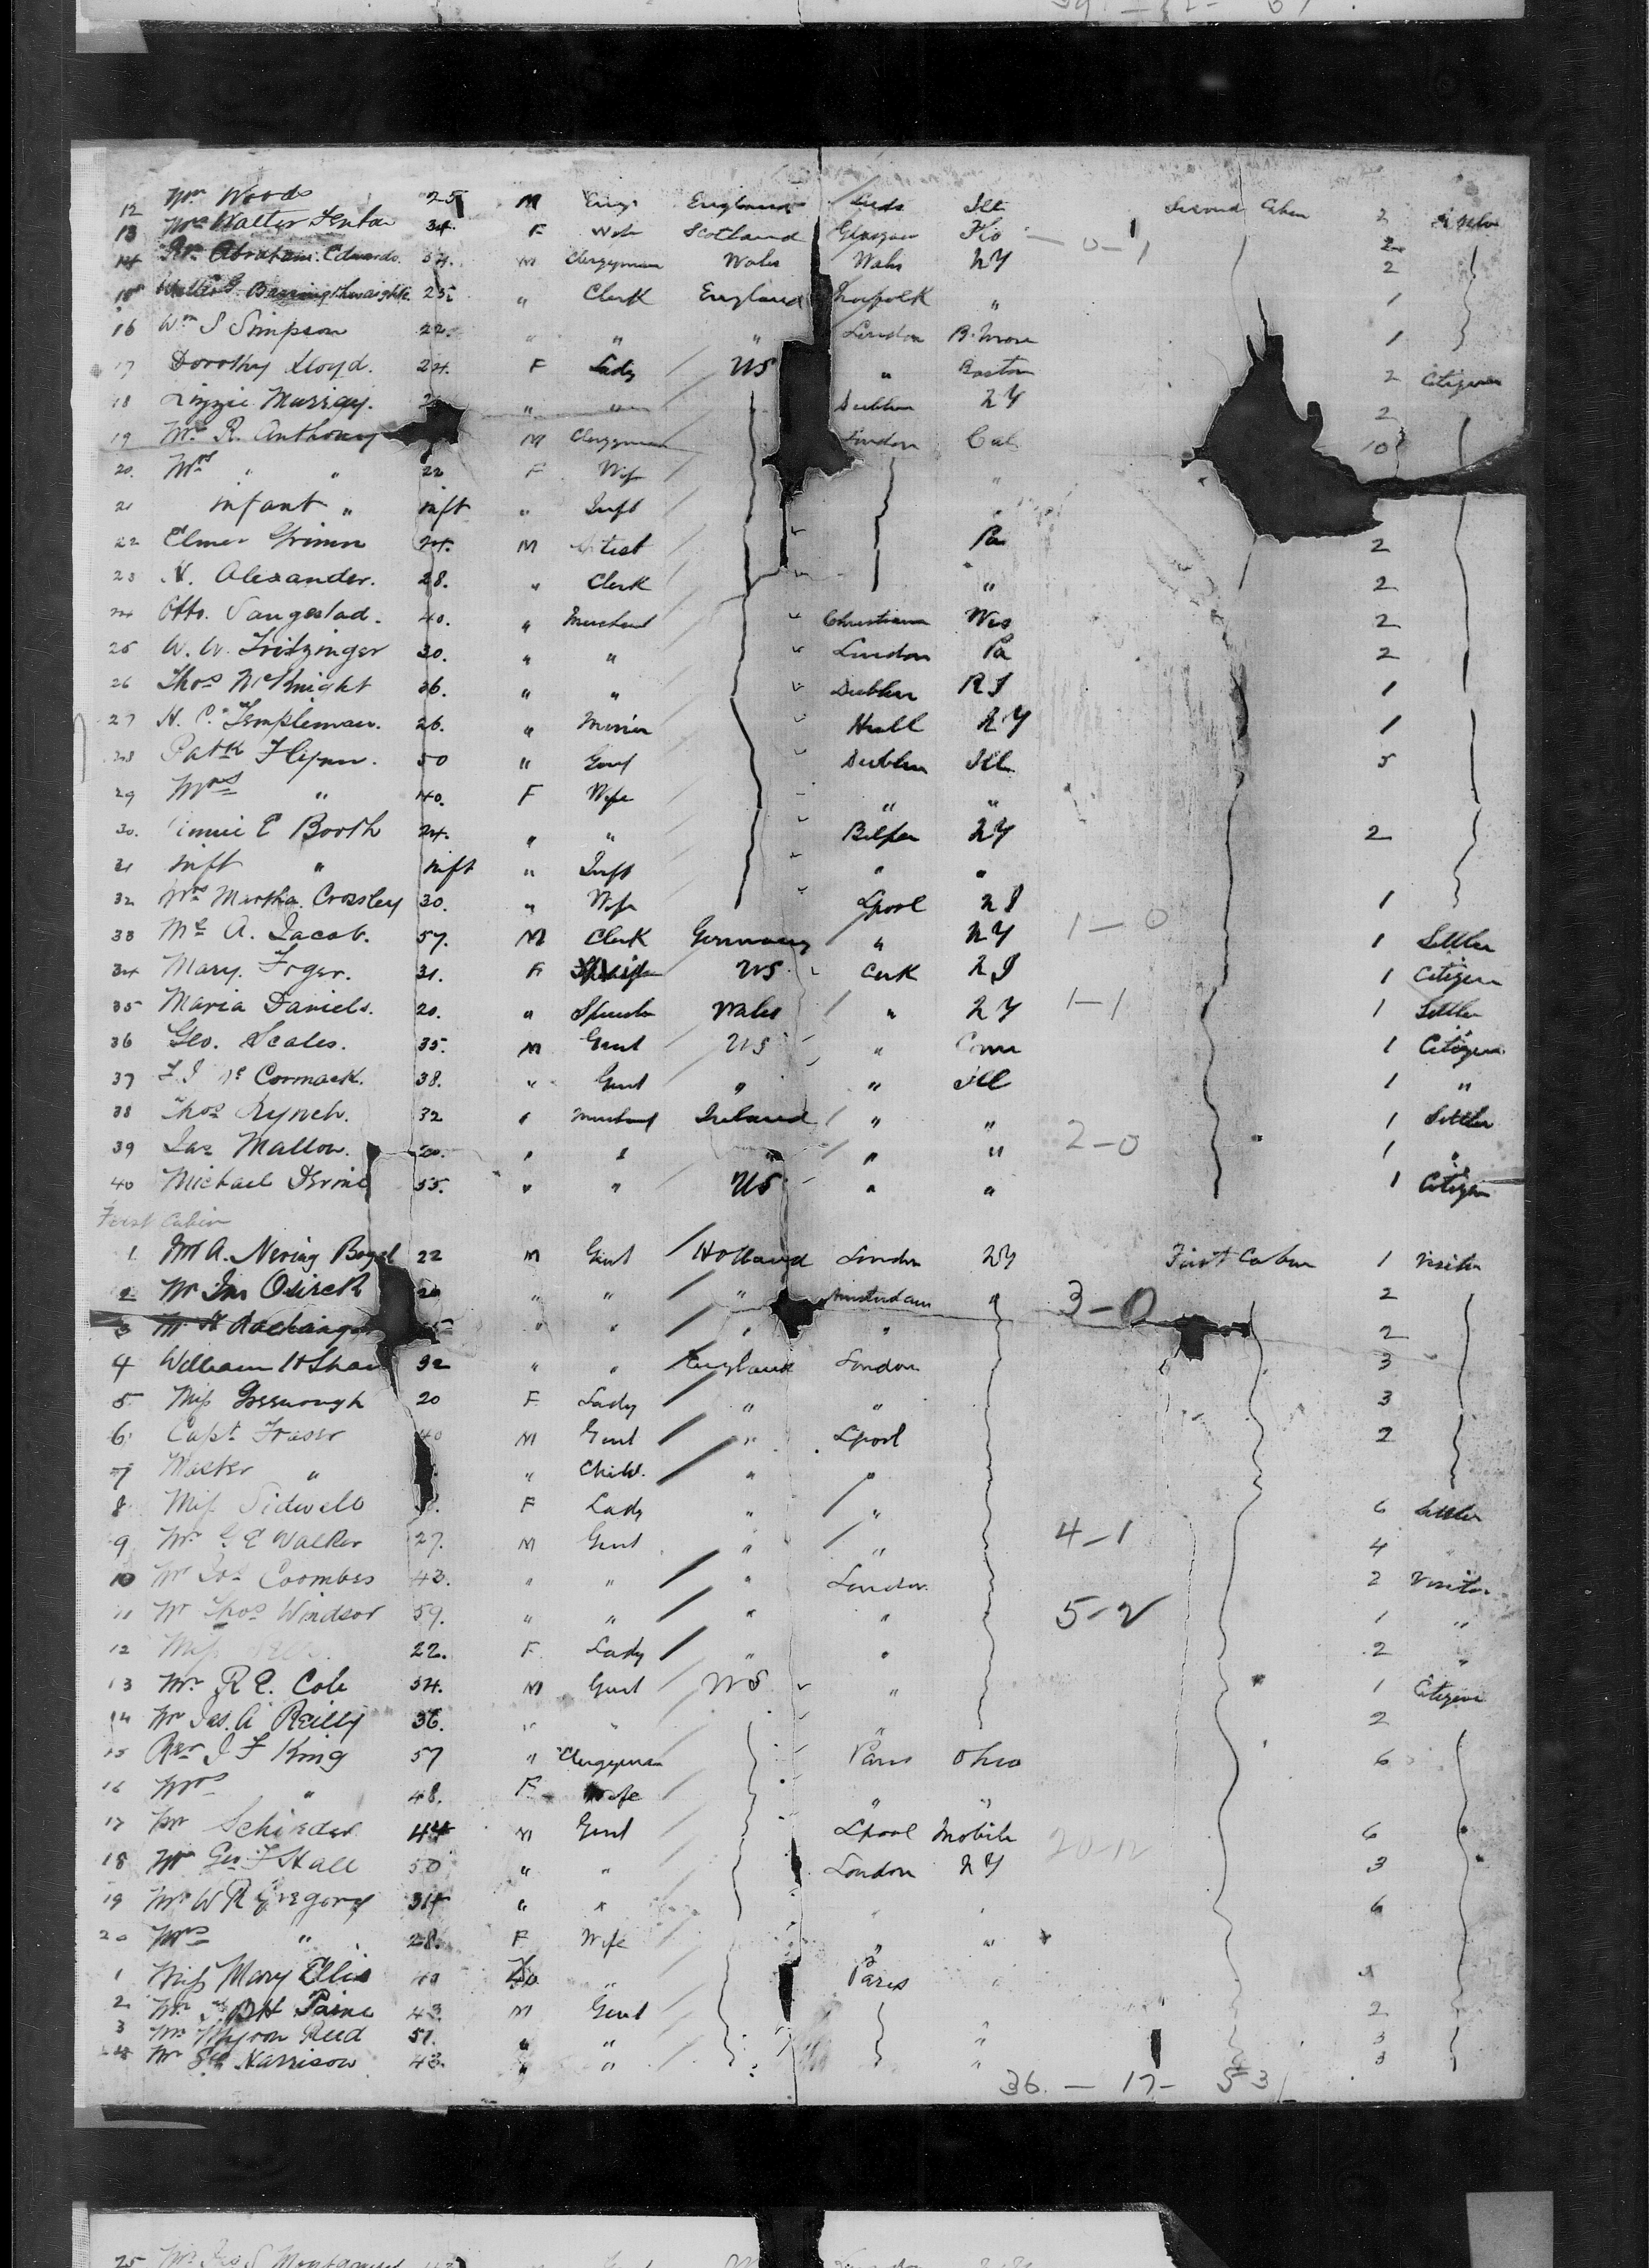 12 Mr Woods 25 M Engr England Leeds Ill Second Cabin 2
13 Mrs Walter 34 F Wife Scotland Glasgow 2
14 Abraham Edwards 54. M Clergyman Wales Wales NY 2
15 25 " Clerk England Norfolk " 1
16 Wm S Simpson 22. " " " London B. More 1
17 Dorothy Lloyd. 24. F Lady US " Boston 2 Citizen
18 Lizzie Murray. " " Dublin NY 2
19 Mr R. Anthony M Clergyman London Cal 10
20. Mrs " " 22 F Wife "
21 infant " inft " Inft
22 Elmer Grimm 24. M Artist Pa 2
23 H. Alexander. 28. " Clerk " 2
24 Otto. Saugestad. 40. " Merchant Christiana Wis 2
25 W. W. Fritzinger 30. " " London Pa 2
26 Thos McKnight 36. " " Dublin R I 1
27 H. C. Templeman. 26. " Hull NY 1
28 Patk Flynn. 50 " Gent Dublin Ill 5
29 Mrs " 40. F Wife " "
30. E Booth 24. " " NY 2
31 inft " inft " Inft " "
32 Mrs Martha Crossley 30. " Wife Lpool 1
33 Mr A. Jacob. 57. M Clerk Germany " NY 1-0 1 Settler
34 Mary. Foger. 31. F US Cork 1 Citizen
35 Maria Daniels. 20. " Spinster Wales " NY 1-1 1 Settler
36 Geo. Scales. 35. M Gent US " Conn 1 Citizen
37 Mc Cormack. 38. " Gent " " Ill 1 "
38 Thos Lynch. 32 " Merchant Ireland " " 1 Settler
39 Jas Mallow. 20. " " " " " 2-0 1 "
40 Michael 55. " " US " " 1 Citizen
First Cabin
1. Mr A. Nering Bogel 22 M Gent Holland London NY First Cabin 1 Visitor
2 Mr Jno 26 " " " Amsterdam " 3-0 2
3 Mr H " " " " 2
4 William H Shaw 32 " " England London 3
5 Miss Greenough 20 F Lady " " 3
6 Capt Fraser 40 M Gent " Lpool 2
7 Master " " Child. " "
8 Miss Sidwell F Lady " " 6 Settler
9 Mr G E Walker 27. M Gent " " 4-1 4 "
10 Mr Jos Coombes 43. " " " London 2 Visitor
11 Mr Thos Windsor 59. " " " " 5-2 1 "
12 Miss 22. F. Lady " " 2 "
13 Mr R E. Cole 54. M Gent US " 1 Citizen
14 Mr Jas. A Reilly 36. " " " 2
15 Rev J F King 57 " Clergyman Paris Ohio 6
16 Mrs " 48. F Wife " "
17 Mr Schieder 44 M Gent Lpool Mobile 20-12 6
18 Mr Geo F Hall 50 " " London NY 3
19 Mr W R Gregory 34 " " " " 6
20 Mrs " 28. F Wife " "
1 Miss Mary Ellis 40 Do " Paris "
2 Mr H Paine 43. M Gent 2
3 Mr Myron Reed 51. " " " 3
4 Mr Harrison 43. " " " 3
36 - 17 - 53